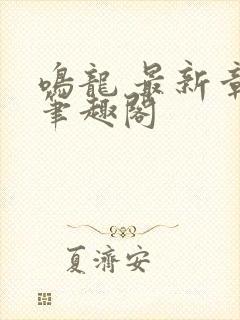 鳴龍 最新章
筆趣閣
夏濟安